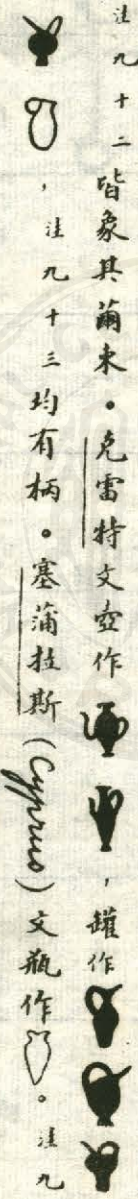 注九十二皆象其繭束。克雷特文壺作，罐作
，注九十三均有柄。塞蒲拉斯(Cyprus)文瓶作。注九